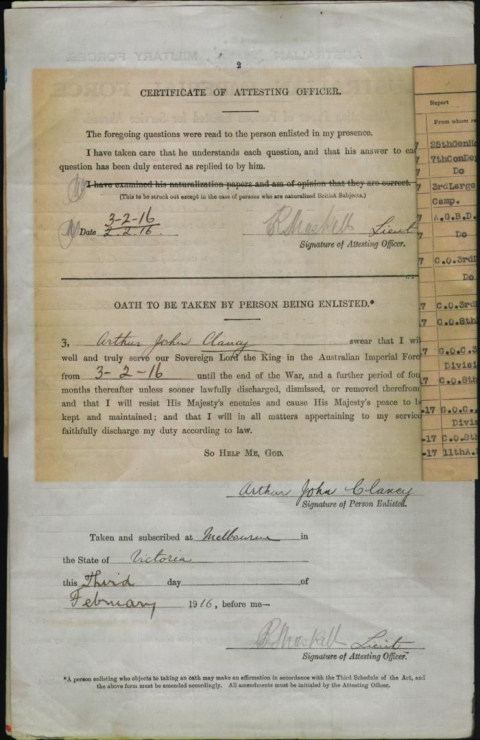 2
CERTIFICATE OF ATTESTING OFFICER.
The foregoing questions were read to the person enlisted in my presence.
I have taken care that he understands each question, and that his answer to eac
question has been duly entered as replied to by him.
I have examined his naturalization papers and am of opinion that they are correct.
(This to be struck out except in the case of persons who are naturalised British Subjects.)
3-2-16
Date 2.2.16.
Lieut
Signature of Attesting Officer.
OATH TO BE TAKEN BY PERSON BEING ENLISTED.*
I, Arthur John Clancy swear that I wil
well and truly serve our Sovereign Lord the King in the Australian Imperial Forc
from 3-2-16 until the end of the War, and a further period of fou
months thereafter unless sooner lawfully discharged, dismissed, or removed therefrom
and that I will resist His Majesty's enemies and cause His Majesty's peace to be
kept and maintained; and that I will in all matters appertaining to my service
faithfully discharge my duty according to law.
SO HELP ME, GOD.
Arthur John Clancy
Signature of Person Enlisted.
Taken and subscribed at Melbourne in
the State of Victoria
this Third day of
February 1916, before me—
Lieut
Signature of Attesting Officer.
*A person enlisting who objects to taking an oath may make an affirmation in accordance with the Third Schedule of the Act, and
the above form must be amended accordingly. All amendments must be initialed by the Attesting Officer.
Report
From whom re
25thGenHo
7thConDep
Do
3rdLarge
Camp.
A.G.B.D.
Do
C.O.3rd
Do
7 C.O.3rd
7 C.O.8th
7 G.O.C.3
Divisi
7 C.O.8th
-17 G.O.C.
Divis
-17 C.O.8th
-17 11thA.